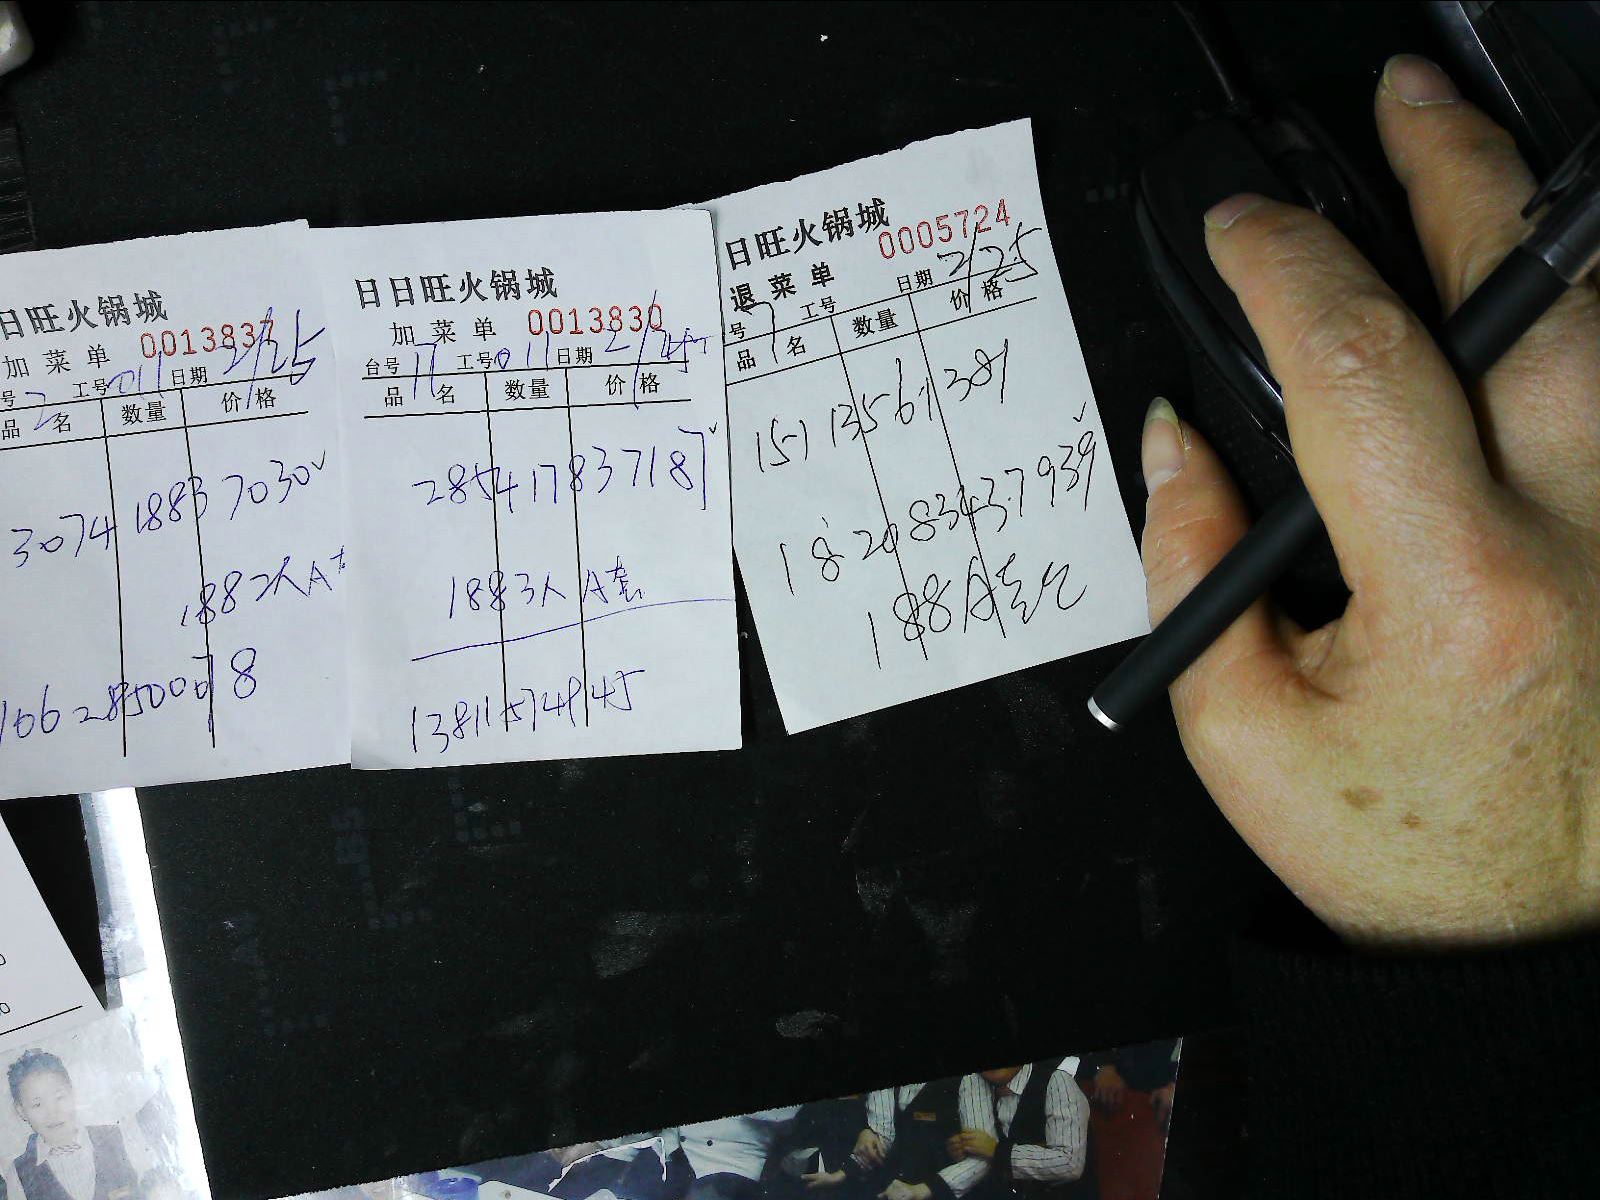 日旺火锅城
加菜单 001383
号 2 工号 011 日期 2/25
品名 数量 价格
3074 1883 7030
1882人A
16628500078
日日旺火锅城
加菜单 0013830
台号 17 工号 011 日期 2/
品名 数量 价格
2854 1783 7187
1883人A套
13811574945
日旺火锅城
0005724
退菜单 日期 2/25
号 工号
品名 数量 价格
15713561381
1820834 37939
188A套